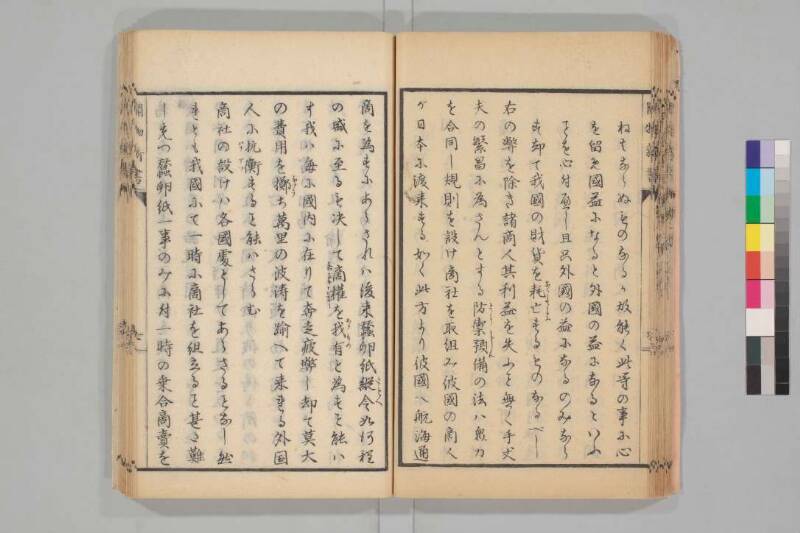 ねバならぬものなるが故能く此等の事に心
を留め國益になると外國の益になるといふ
ことを心付べし且只外國の益になるのみなら
ず却て我國の財貨を耗亡するものなるべし
右の弊を除き諸商人其利益を失ふと無く手丈
夫の繁昌に為さんとする防禦預備の法ハ衆力
を合同し規則を設け商社を取組み彼國の商人
が日本に渡来する如く此方より彼國へ航海通
商を為すにあり されハ後来蠶卵紙縦令如何程
の盛に至るも决して商權を我有と為すと能ハ
ず我ハ海に國内に在りて奔走疲弊し却て莫大
の費用を擲ち萬里の波涛を踰へて来る外国
人に抗衡すると能ハざるむ
商社の設けハ各國處としてあらざるとなし然
れども我國にて一時に商社を組立ると甚だ難
し先つ蠶卵紙一事のみに付一時の乗合商賣を